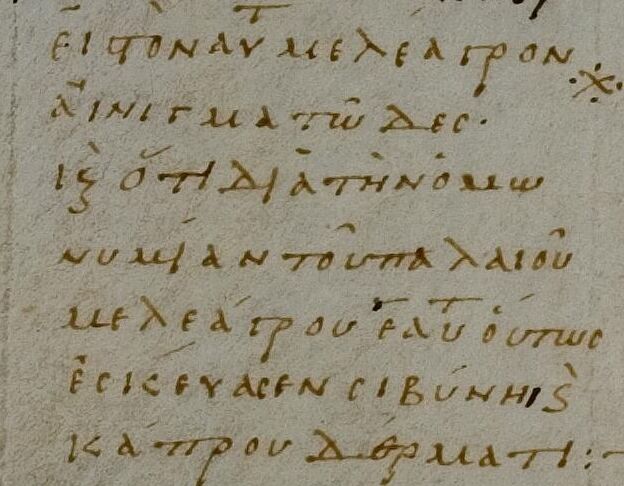 εἰς τὸν αὐτ μελέαγρον
αἰνιγματῶδες·
ἰϛ ὅτι διὰ τὴν ὁμω
νυμίαν τοῦ παλαιοῦ
μελεάγρου ἑαυτ οὕτως
ἐσκεύασεν σιβύνηι ϗ
κάπρου δέρματι: